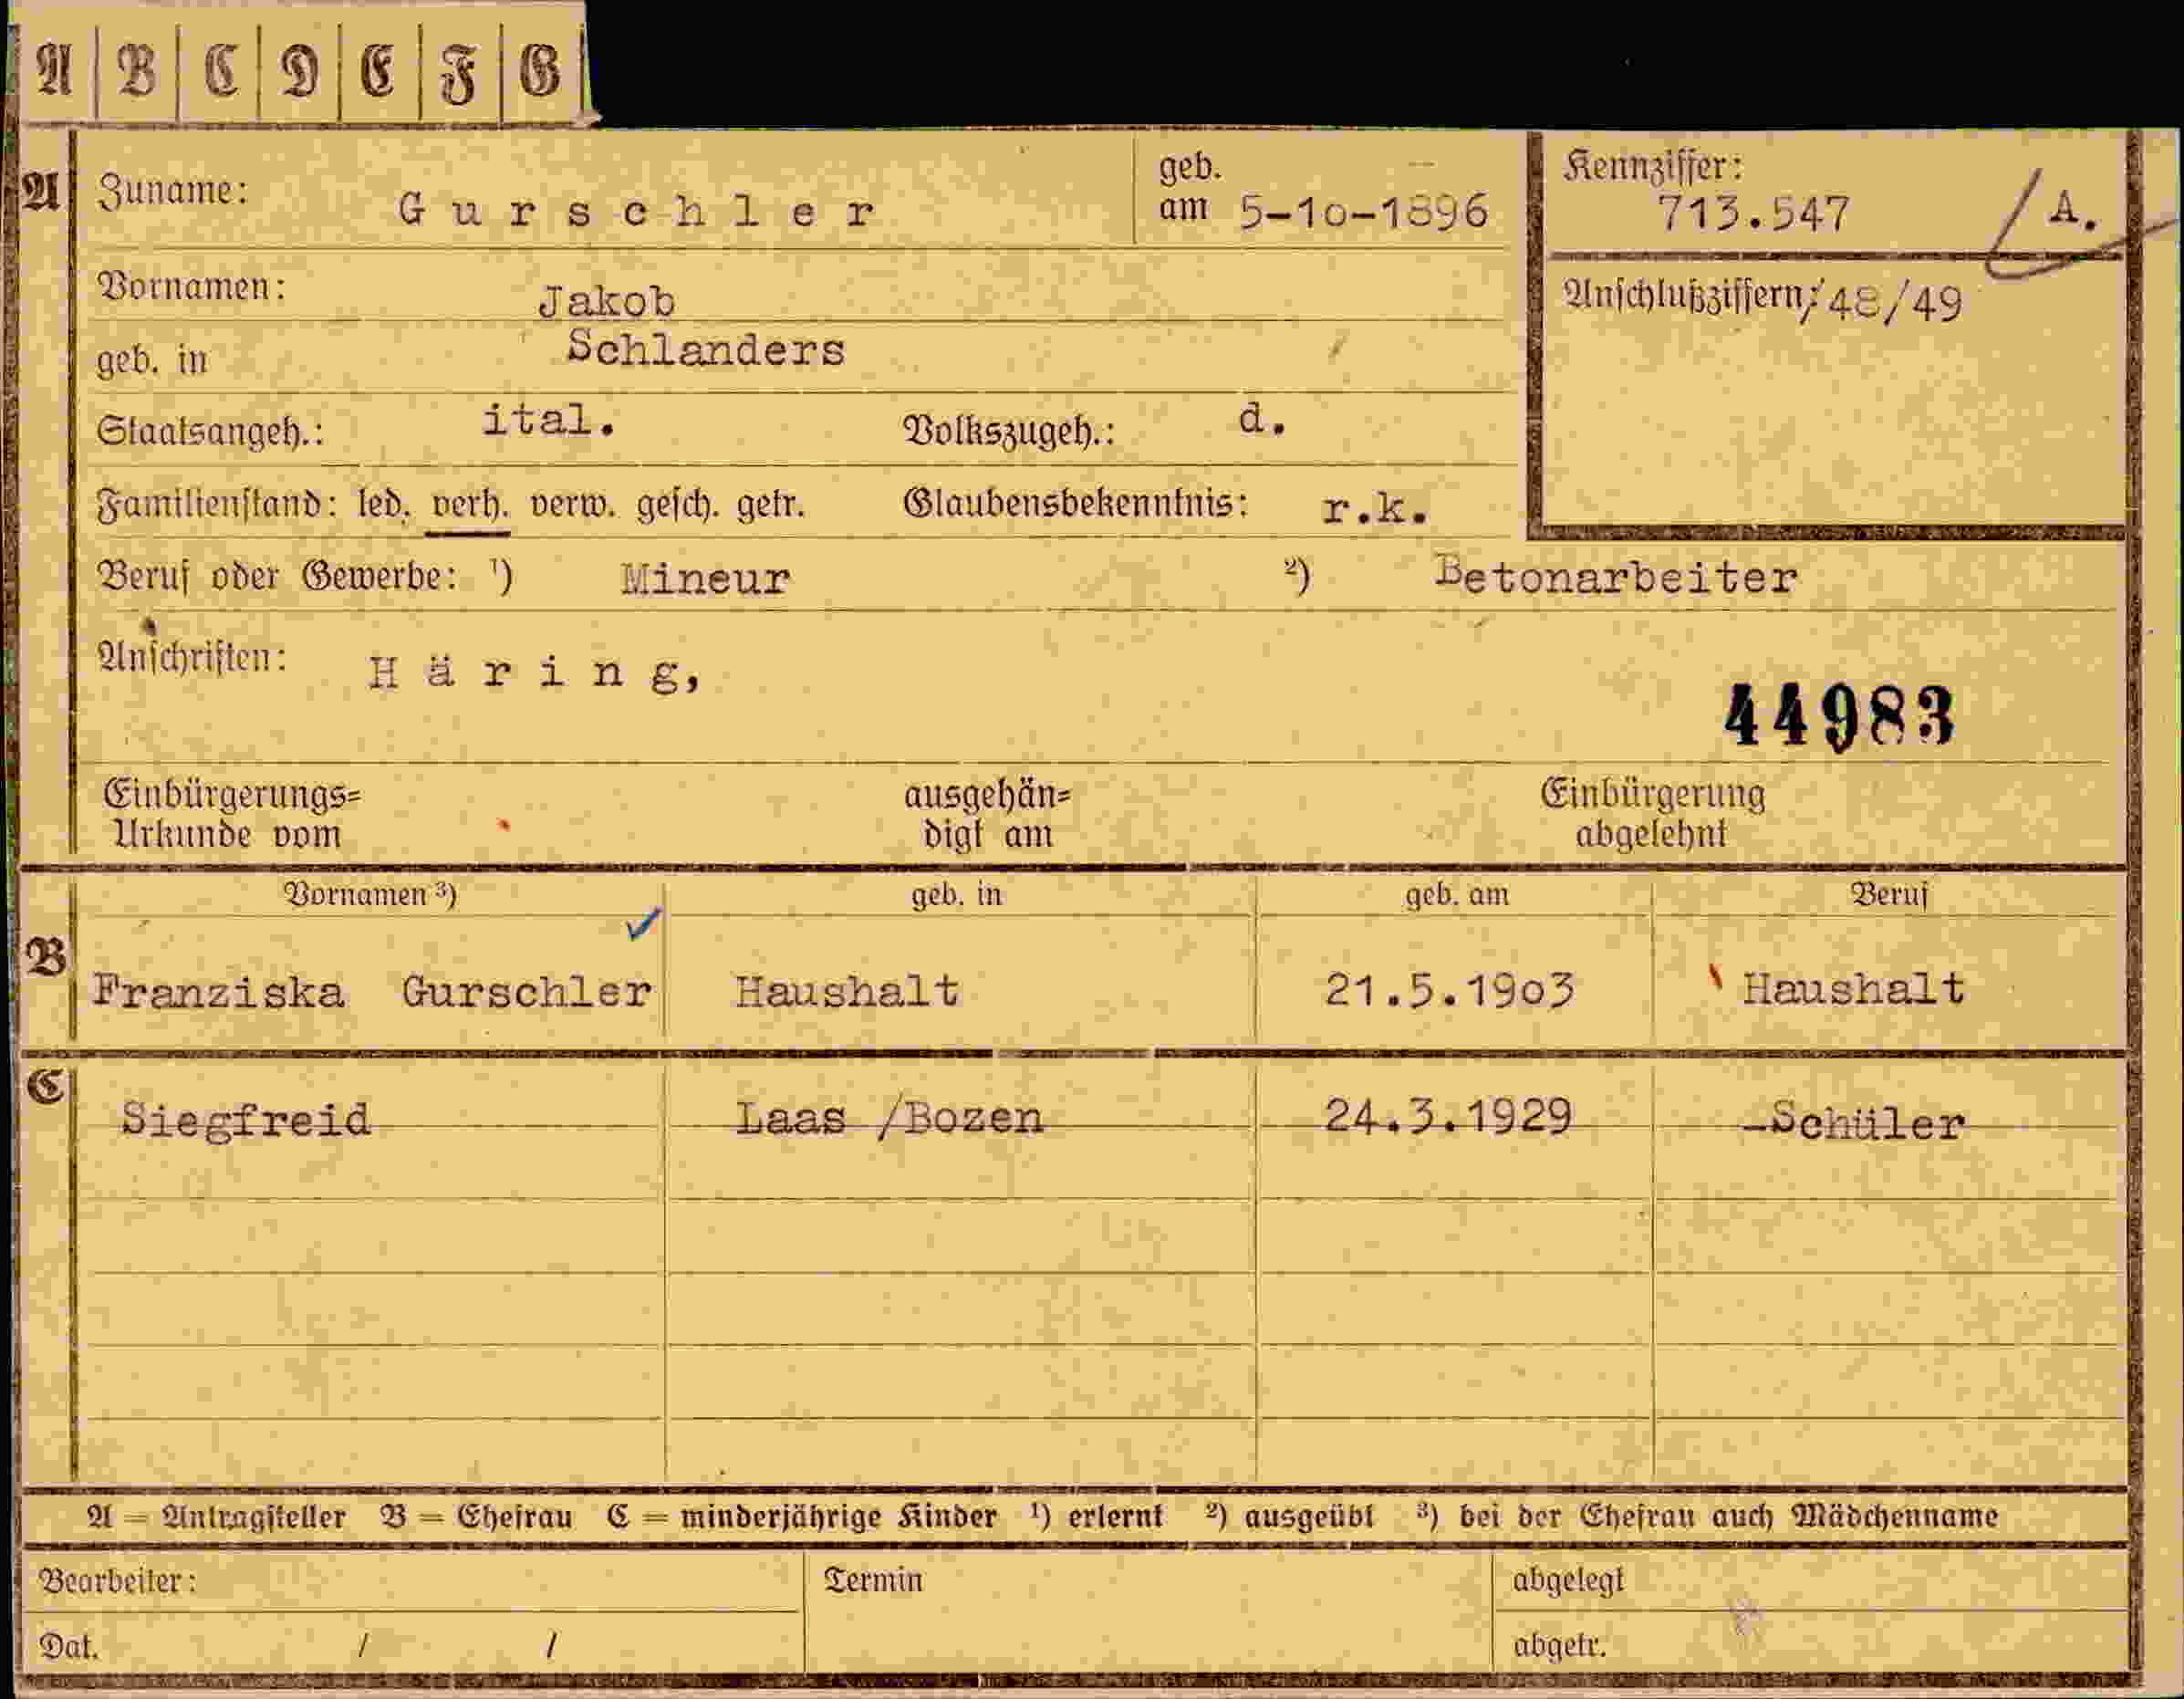 A B C D E F G
A Zuname: Gurschler geb. am 5-10-1896 Kennziffer: 713.547 / A.
Vornamen: Jakob Anschlußziffern: 48/49
geb. in Schlanders
Staatsangeh.: ital. Volkszugeh.: d.
Familienstand: led. verh. verw. gesch. getr. Glaubensbekenntnis: r.k.
Beruf oder Gewerbe: ¹) Mineur ²) Betonarbeiter
Anschriften: Häring,
44983
Einbürgerungs= ausgehän= Einbürgerung
Urkunde vom digt am abgelehnt
Vornamen ³) geb. in geb. am Beruf
B Franziska Gurschler Haushalt 21.5.1903 Haushalt
C Siegfreid Laas /Bozen 24.3.1929 -Schüler
A = Antragsteller B = Ehefrau C = minderjährige Kinder ¹) erlernt ²) ausgeübt ³) bei der Ehefrau auch Mädchenname
Bearbeiter: Termin abgelegt
Dat. / / abgetr.